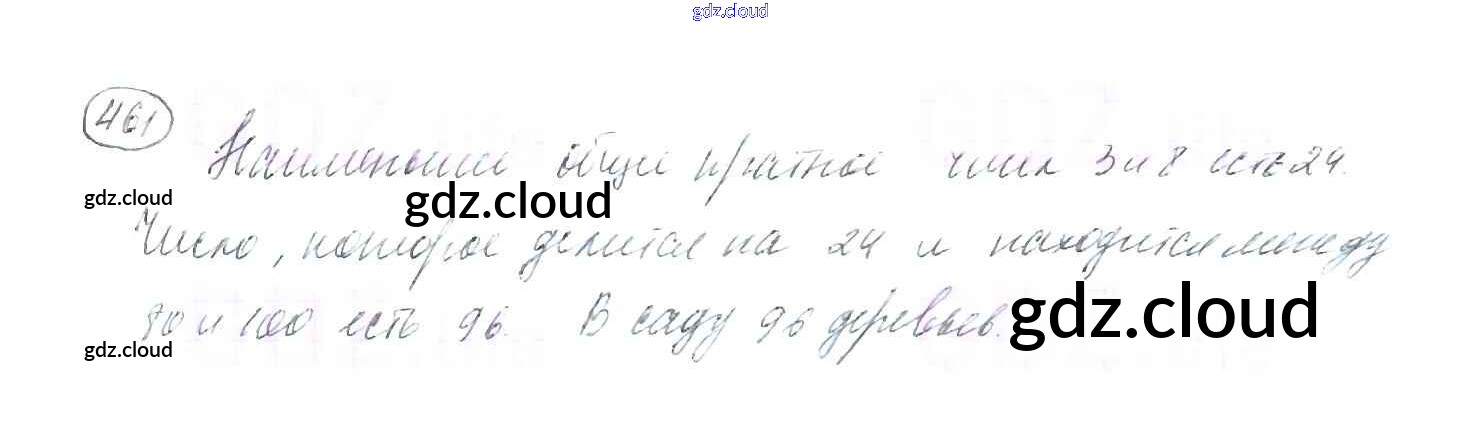 gdz.cloud
461
Наименьшее общее кратное чисел 3 и 8 есть 24.
gdz.cloud
gdz.cloud
Число, которое делится на 24 и находится между
gdz.cloud
90 и 100 есть 96. В саду 96 деревьев.
gdz.cloud